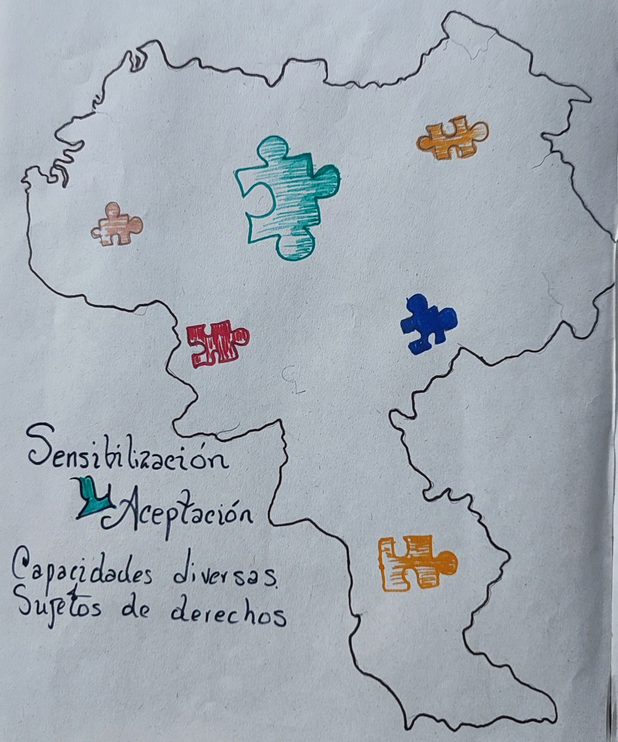 Sensibilización
Aceptación
Capacidades diversas.
Sujetos de derechos